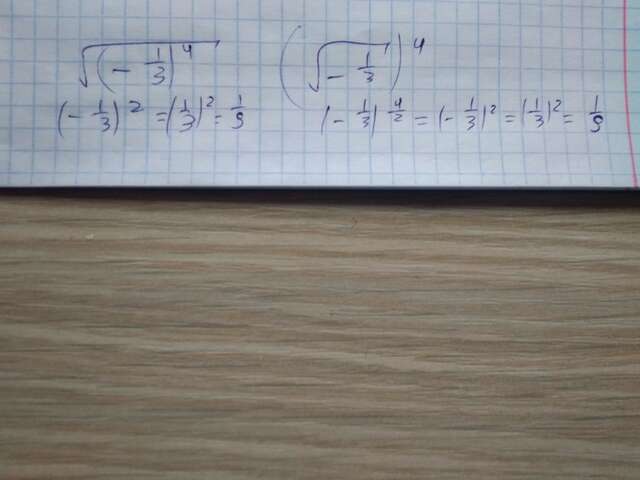 √(-1/3)^4 (√-1/3)^4
(-1/3)^2 = (1/3)^2 = 1/9 (-1/3)^4/2 = (-1/3)^2 = (1/3)^2 = 1/9